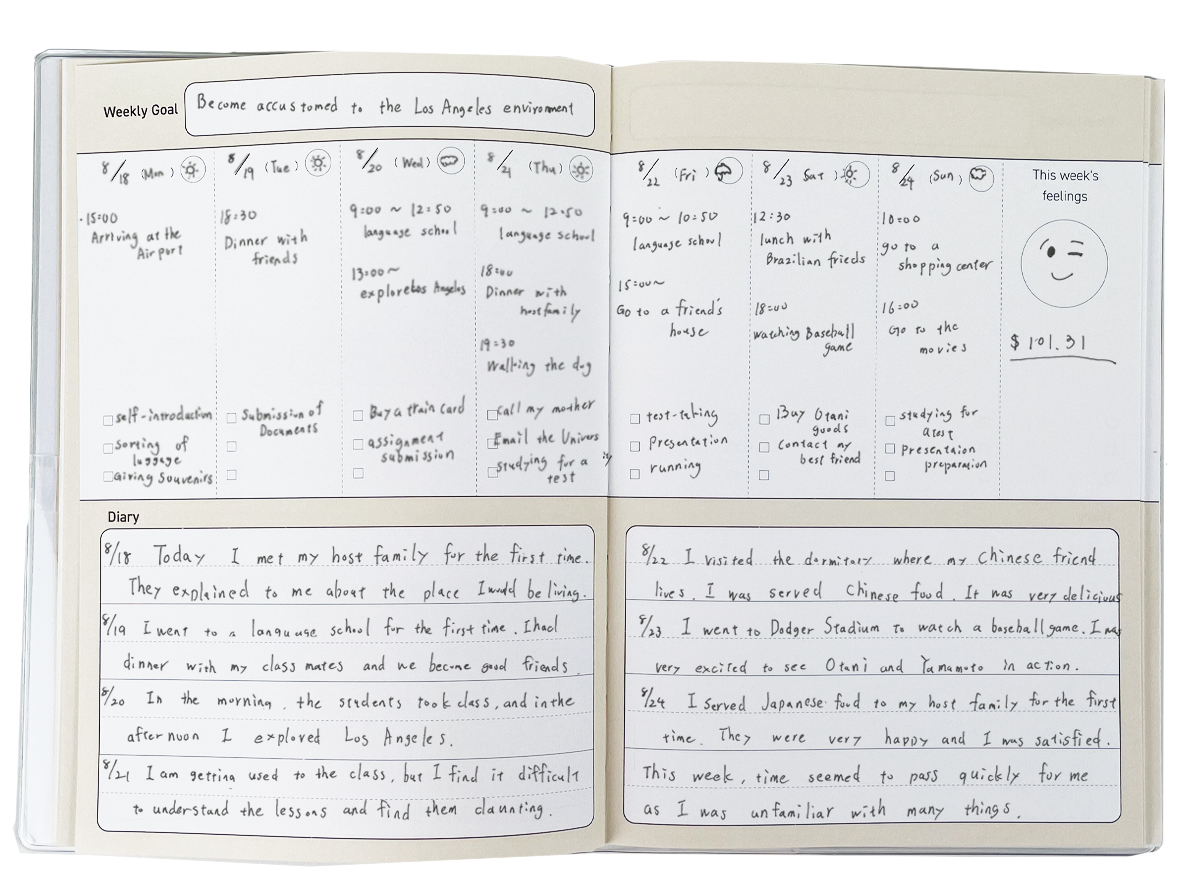 Weekly Goal
Become accustomed to the Los Angeles environment
8/18 (Mon)
15:00
Arriving at the
Airport
self-introduction
sorting of
luggage
Giving Souvenirs
8/19 (Tue)
18:30
Dinner with
friends
Submission of
Documents
8/20 (Wed)
9:00 ~ 12:50
language school
13:00 ~
explore Los Angelos
Buy a train card
assignment
submission
8/21 (Thu)
9:00 ~ 12:50
language school
18:00
Dinner with
host family
19:30
Walking the dog
call my mother
Email the Univers
ity
studying for a
test
8/22 (Fri)
9:00 ~ 10:50
language school
15:00~
Go to a friend's
house
test-taking
Presentation
running
8/23 Sat)
12:30
lunch with
Brazilian frieds
18:00
watching Baseball
game
Buy Otani
goods
contact my
best friend
8/24 (Sun)
10:00
go to a
shopping center
16:00
Go to the
movies
studying for
a test
Presentaion
preparation
This week's
feelings
$ 101.31
Diary
8/18 Today I met my host family for the first time.
They explained to me about the place I would be living.
8/19 I went to a language school for the first time. I had
dinner with my classmates and we become good friends.
8/20 In the morning, the students took class, and in the
afternoon I explored Los Angeles.
8/21 I am getting used to the class, but I find it difficult
to understand the lessons and find them daunting.
8/22 I visited the dormitory where my Chinese friend
lives. I was served Chinese food. It was very delicious
8/23 I went to Dodger Stadium to watch a baseball game. I was
very excited to see Otani and Yamamoto in action.
8/24 I served Japanese food to my host family for the first
time. They were very happy and I was satisfied.
This week, time seemed to pass quickly for me
as I was unfamiliar with many things.